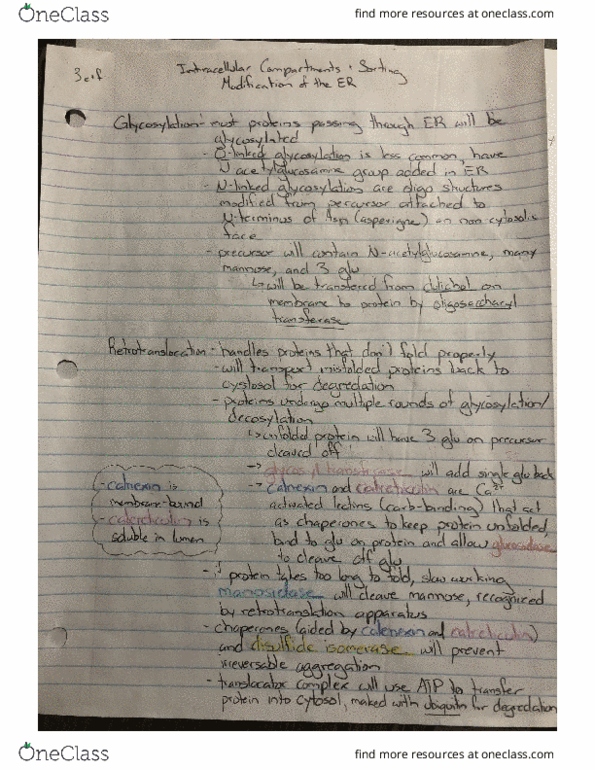 OneClass
find more resources at oneclass.com
3 of
Intracellular Compartments + Sorting
Modification of the ER
Glycosylation - most proteins passing through ER will be
glycosylated
- O-linked glycosylation is less common, have
N acetylglucosamine group added in ER
- N-linked glycosylation are oligo structures
modified from percursor attached to
N-terminus of Asn (asperigne) on non cytosolic
face
- precursor will contain N-acetylglucosamine, many
mannose, and 3 glu
↳ will be transfered from dolichol on
membrane to protein by oligosaccharyl
transferase
Retrotranslocation - handles proteins that don't fold properly
- will transport misfolded proteins back to
cystosol for degredation
- proteins undergo multiple rounds of glycosylation/
decosylation
↳ unfolded protein will have 3 glu on precursor
cleaved off
→ glycosyl transferase will add single glu back
→ calnexin and calreticulin are Ca²⁺
activated lectins (carb-binding) that act
as chaperones to keep protein unfolded,
bind to glu on protein and allow glucosidase
to cleave off glu
- calnexin is
membrane-bound
- calreticulin is
soluble in lumen
- if protein takes too long to fold, slow working
manosidase will cleave mannose, recognized
by retrotranslation apparatus
- chaperones (aided by calnexin and calreticulin)
and disulfide isomerase will prevent
irreversable aggregation
- translocator complex will use ATP to transfer
protein into cytosol, maked with ubiquitin for degredation
OneClass
find more resources at oneclass.com